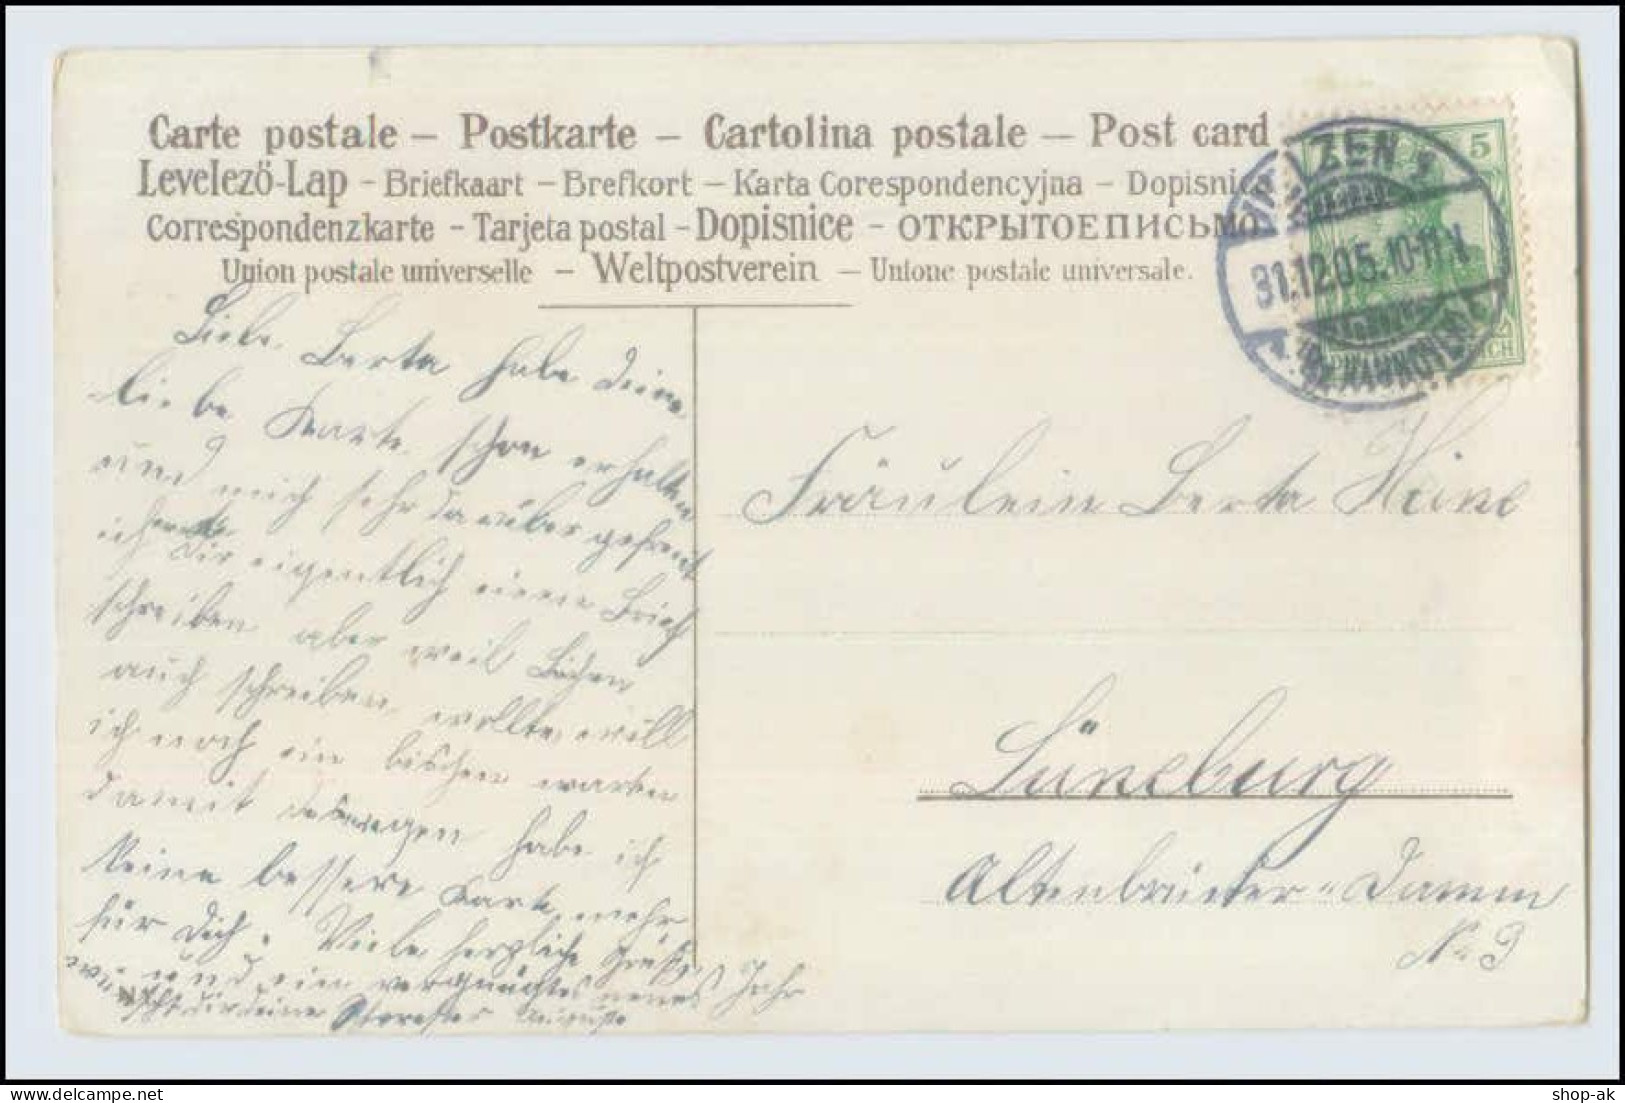 Carte postale – Postkarte – Cartolina postale – Post card
Levelezö-Lap – Briefkaart – Brefkort – Karta Corespondencyjna – Dopisnica
Correspondenzkarte – Tarjeta postal – Dopisnice – ОТКРЫТОЕПИСЬМО
Union postale universelle – Weltpostverein – Unione postale universale.
5
ZEN 1
31.12.05.10-11 V.
(BZ. HANNOVER)
Liebe Berta habe Deine
liebe Karte schon erhalten
und mich sehr darüber gefreut
ich Dir eigentlich einen Brief
schreiben aber weil
auch schreiben wollte will
ich noch ein bischen warten
damit deswegen habe ich
keine bessere Karte mehr
für Dich. Viele herzliche Grüße
und ein vergnügtes neues Jahr
wünscht dir deine Auguste
Fräulein Berta Heine
Lüneburg
Altenbrücker-Damm
No 9
shop-ak